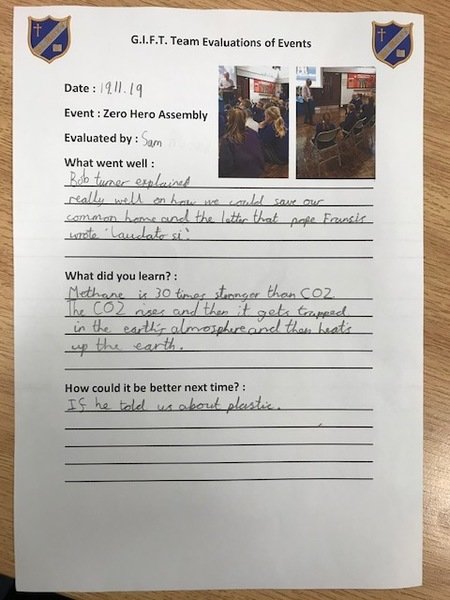 G.I.F.T. Team Evaluations of Events
Date : 19.11.19
Event : Zero Hero Assembly
Evaluated by : Sam
What went well :
Rob turner explained
really well on how we could save our
common home and the letter that pope Fransis
wrote 'Laudato si'.
What did you learn? :
Methane is 30 times stronger than CO2
The CO2 rises and then it gets trapped
in the earth's atmosphere and then heats
up the earth.
How could it be better next time? :
If he told us about plastic.